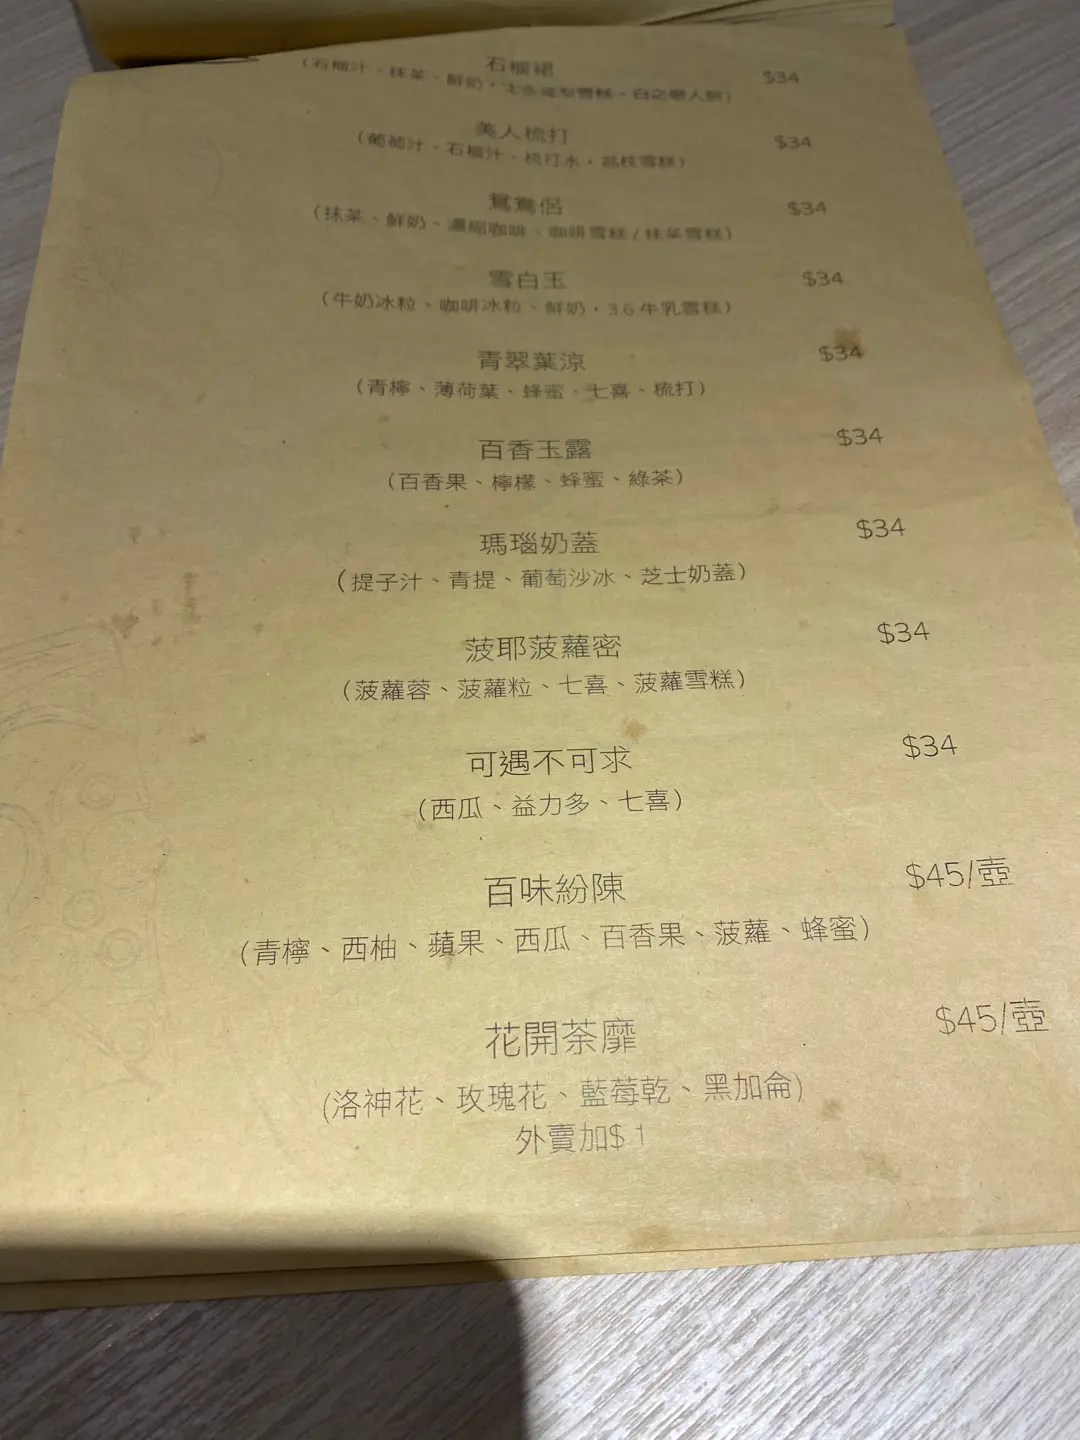 石榴裙 $34
(石榴汁、抹茶、鮮奶，士多啤梨雪糕、白之戀人餅)
美人梳打 $34
(葡萄汁、石榴汁、梳打水，荔枝雪糕)
鴛鴦侶 $34
(抹茶、鮮奶、濃縮咖啡、咖啡雪糕/抹茶雪糕)
雪白玉 $34
(牛奶冰粒、咖啡冰粒、鮮奶，3.6牛乳雪糕)
青翠葉涼 $34
(青檸、薄荷葉、蜂蜜、七喜、梳打)
百香玉露 $34
(百香果、檸檬、蜂蜜、綠茶)
瑪瑙奶蓋 $34
(提子汁、青提、葡萄沙冰、芝士奶蓋)
菠耶菠蘿密 $34
(菠蘿蓉、菠蘿粒、七喜、菠蘿雪糕)
可遇不可求 $34
(西瓜、益力多、七喜)
百味紛陳 $45/壺
(青檸、西柚、蘋果、西瓜、百香果、菠蘿、蜂蜜)
花開荼靡 $45/壺
(洛神花、玫瑰花、藍莓乾、黑加侖)
外賣加$1